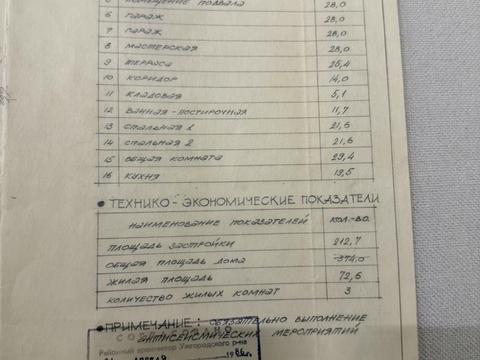 5 ПОМЕЩЕНИЕ ПОДВАЛА 28,0
6 ГАРАЖ 28,0
7 ГАРАЖ 28,0
8 МАСТЕРСКАЯ 28,0
9 ТЕРРАСА 25,4
10 КОРИДОР 14,0
11 КЛАДОВАЯ 5,1
12 ВАННАЯ-ПОСТИРОЧНАЯ 11,7
13 СПАЛЬНАЯ 1 21,6
14 СПАЛЬНАЯ 2 21,6
15 ОБЩАЯ КОМНАТА 29,4
16 КУХНЯ 19,5
• ТЕХНИКО-ЭКОНОМИЧЕСКИЕ ПОКАЗАТЕЛИ
НАИМЕНОВАНИЕ ПОКАЗАТЕЛЕЙ КОЛ-ВО.
ПЛОЩАДЬ ЗАСТРОЙКИ 212,7
ОБЩАЯ ПЛОЩАДЬ ДОМА 374,0
ЖИЛАЯ ПЛОЩАДЬ 72,6
КОЛИЧЕСТВО ЖИЛЫХ КОМНАТ 3
• ПРИМЕЧАНИЕ: ОБЯЗАТЕЛЬНО ВЫПОЛНЕНИЕ
АНТИСЕЙСМИЧЕСКИХ МЕРОПРИЯТИЙ
СОГЛАСОВАНО
Районный архитектор Ужгородского р-на